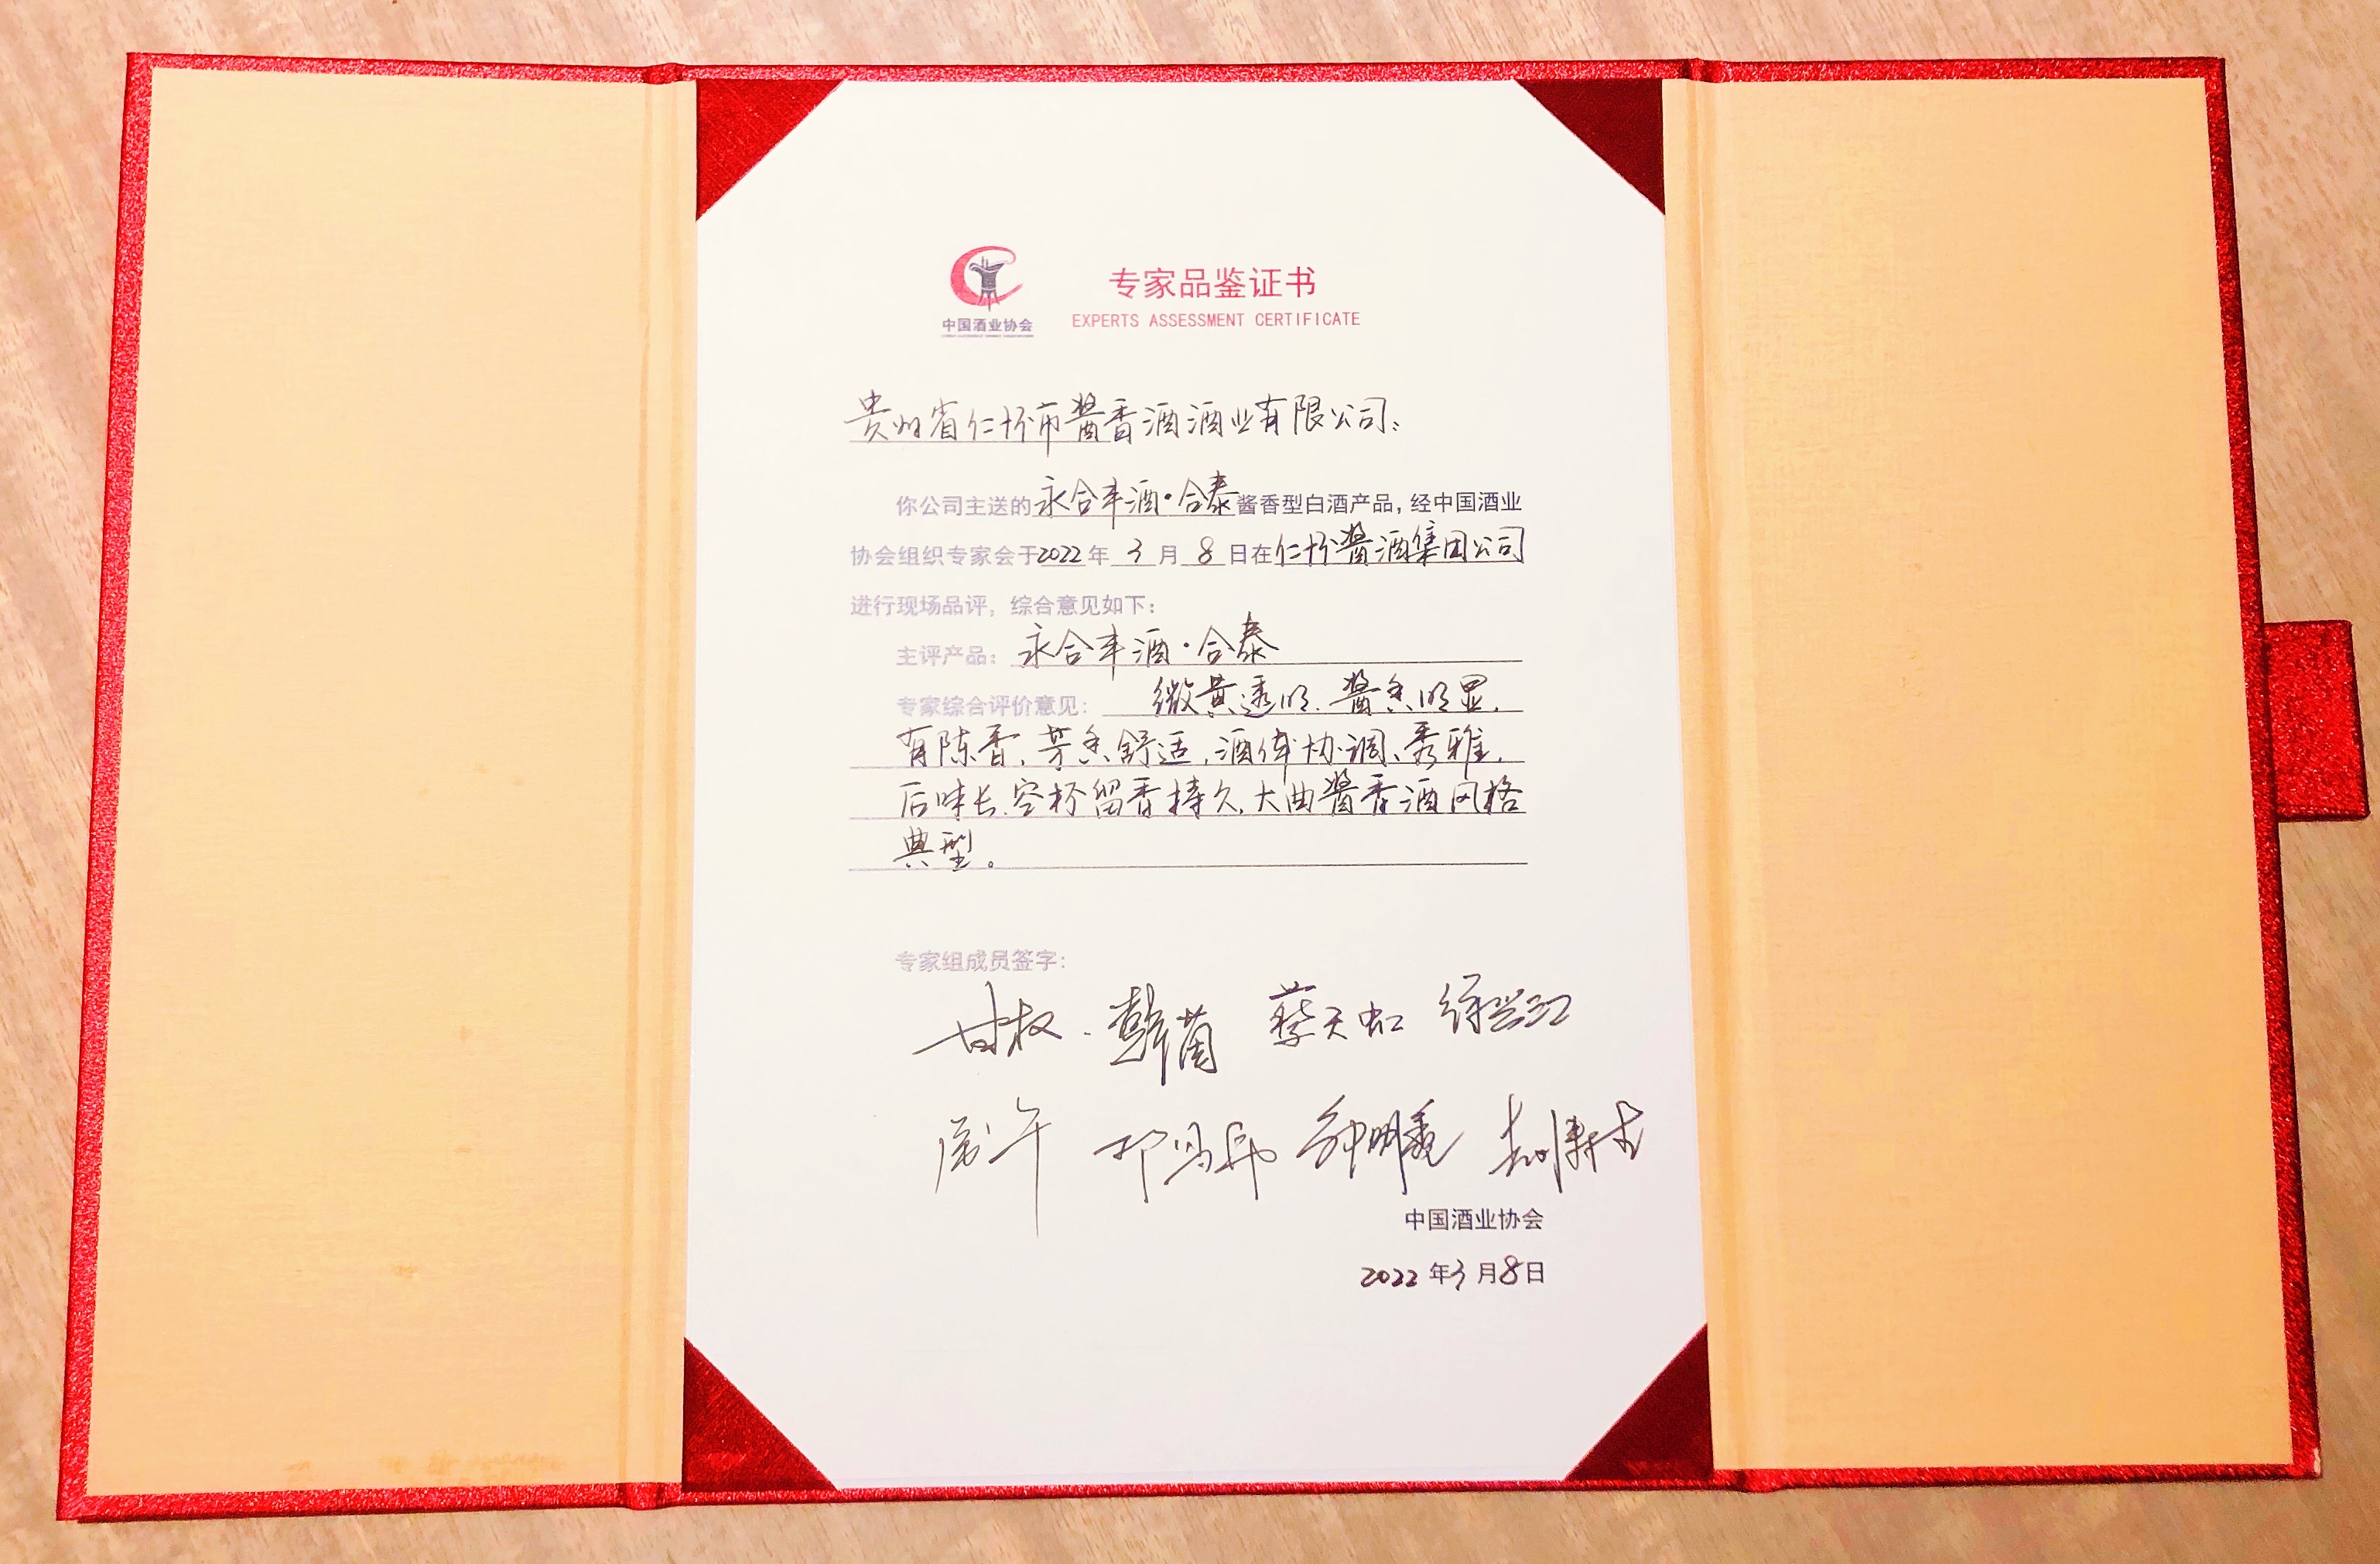 中国酒业协会
专家品鉴证书
EXPERTS ASSESSMENT CERTIFICATE
贵州省仁怀市酱香酒酒业有限公司：
你公司主送的永合丰酒·合泰酱香型白酒产品，经中国酒业
协会组织专家会于2022年3月8日在仁怀酱酒集团公司
进行现场品评，综合意见如下：
主评产品：永合丰酒·合泰
专家综合评价意见：微黄透明、酱香明显、
有陈香、芳香舒适、酒体协调、秀雅、
后味长、空杯留香持久、大曲酱香酒风格
典型。
专家组成员签字：
甘权 韩菌 蔡天虹 徐兴江
钟明
中国酒业协会
2022年3月8日